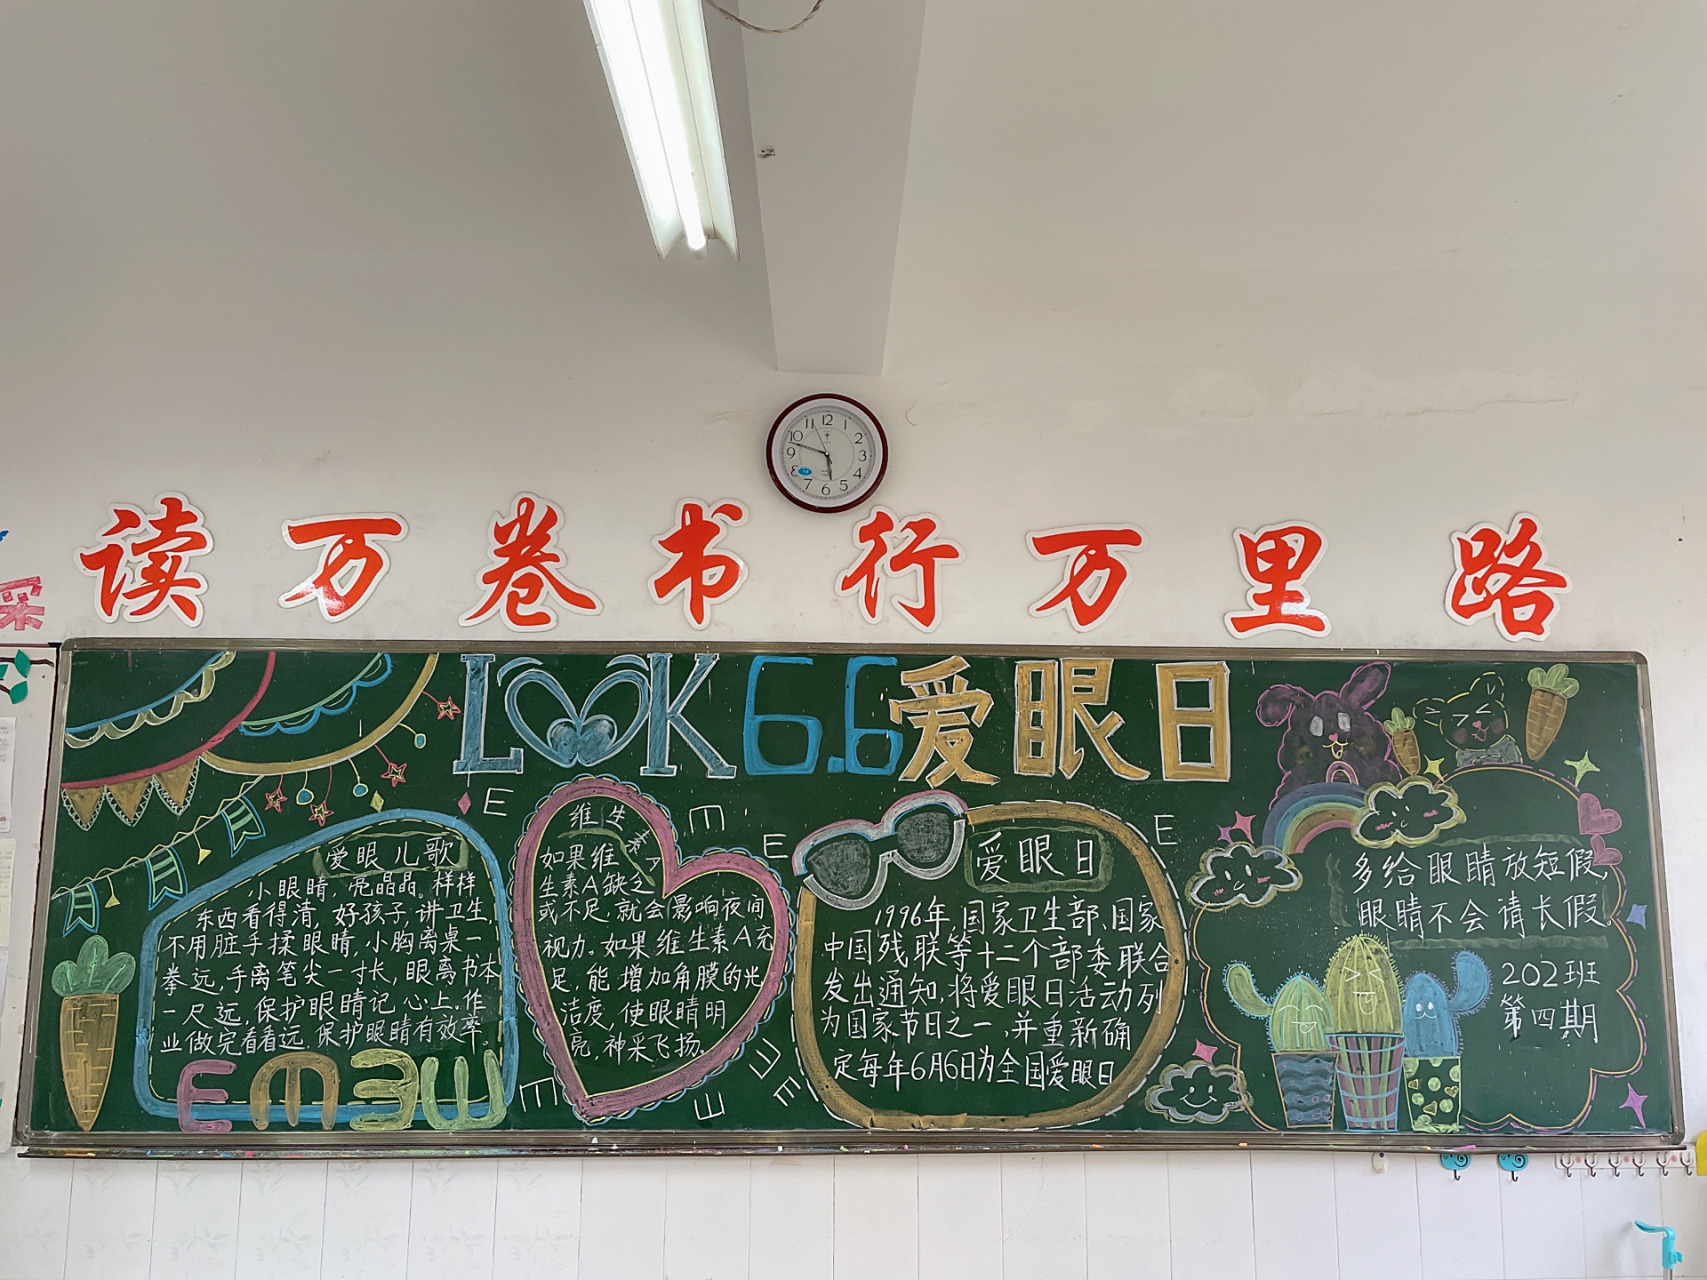 读万卷书行万里路
LOOK 6.6 爱眼日
爱眼儿歌
小眼睛,亮晶晶。样样
东西看得清,好孩子,讲卫生,
不用脏手揉眼睛,小胸离桌一
拳远,手离笔尖一寸长,眼离书本
一尺远,保护眼睛记心上。作
业做完看看远,保护眼睛有效率。
E
m
3
w
维生素A
如果维
生素A缺乏
或不足,就会影响夜间
视力。如果维生素A充
足,能增加角膜的光
洁度,使眼睛明
亮,神采飞扬。
爱眼日
1996年,国家卫生部、国家
中国残联等十二个部委联合
发出通知,将爱眼日活动列
为国家节日之一,并重新确
定每年6月6日为全国爱眼日
多给眼睛放短假,
眼睛不会请长假。
202班
第四期
E
E
E
E
E
E
E
E
12
1
2
3
4
5
6
7
8
9
10
11
采